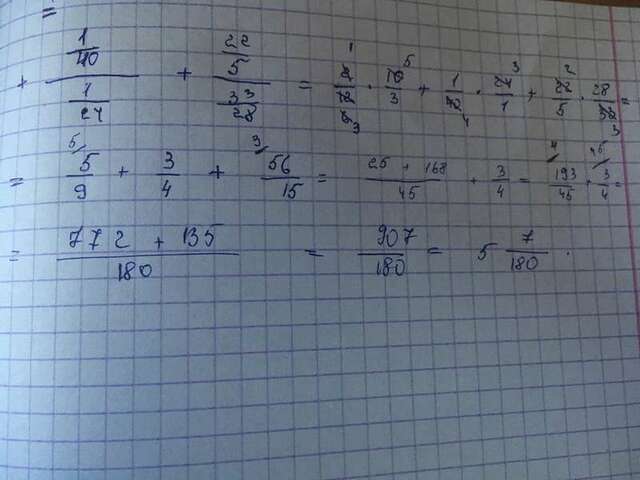 =
+ \frac{\frac{1}{40}}{\frac{1}{24}} + \frac{\frac{22}{5}}{\frac{33}{28}} = \frac{2}{12} \cdot \frac{10}{3} + \frac{1}{40} \cdot \frac{24}{1} + \frac{22}{5} \cdot \frac{28}{33} =
= \frac{5}{9} + \frac{3}{4} + \frac{56}{15} = \frac{25 + 168}{45} + \frac{3}{4} = \frac{193}{45} + \frac{3}{4} =
= \frac{772 + 135}{180} = \frac{907}{180} = 5 \frac{7}{180} .